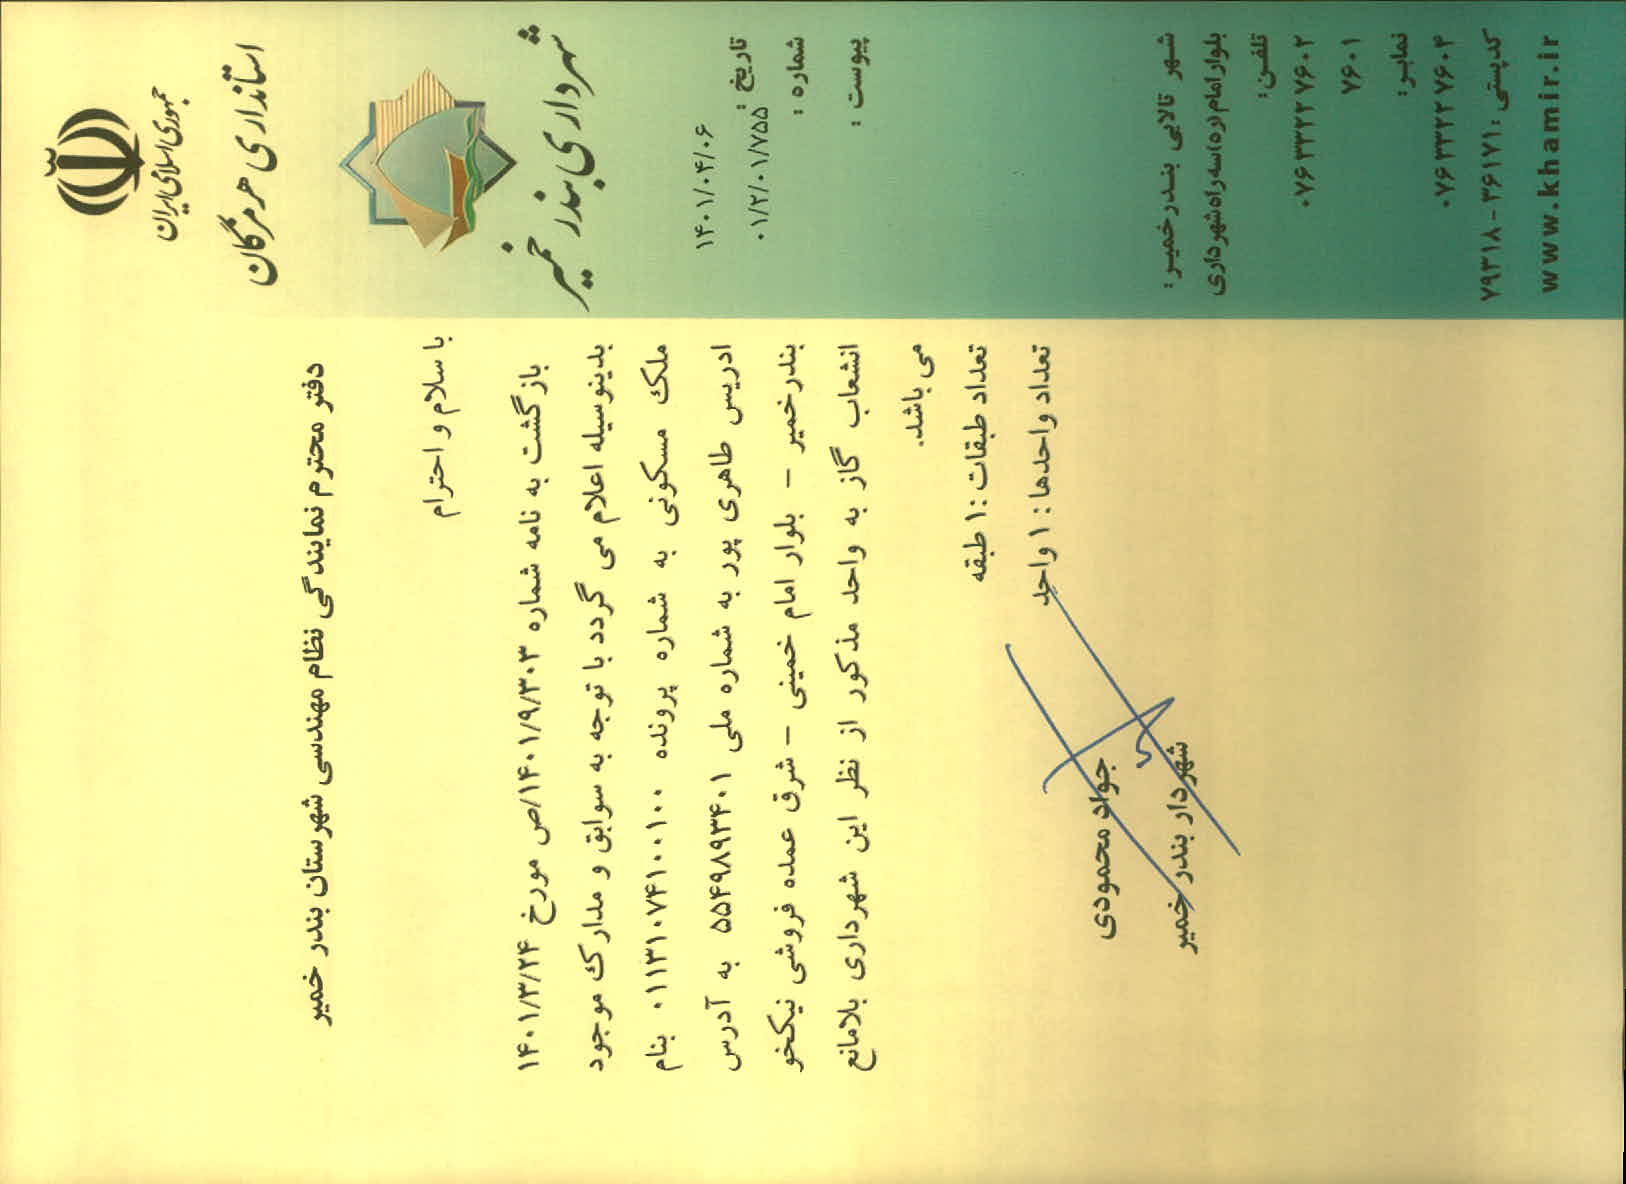 جمهوری اسلامی ایران
استانداری هرمزگان
شهرداری بندر خمیر
تاریخ :
۱۴۰۱/۰۴/۰۶
شماره :
۰۱/۲/۰۱/۷۵۵
پیوست :
دفتر محترم نمایندگی نظام مهندسی شهرستان بندر خمیر
با سلام و احترام
بازگشت به نامه شماره ۱۴۰۱/۹/۳۰۳/ص مورخ ۱۴۰۱/۳/۲۴
بدینوسیله اعلام می گردد با توجه به سوابق و مدارک موجود
ملک مسکونی به شماره پرونده ۰۱۱۳۱۰۷۴۱۰۰۱۰۰ بنام
ادریس طاهری پور به شماره ملی ۵۵۴۹۸۹۳۴۰۱ به آدرس
بندرخمیر – بلوار امام خمینی – شرق عمده فروشی نیکخو
انشعاب گاز به واحد مذکور از نظر این شهرداری بلامانع
می باشد.
تعداد طبقات :۱ طبقه
تعداد واحدها : ۱ واحد
جواد محمودی
شهردار بندر خمیر
شهر تالابی بندرخمیر :
بلوار امام(ره)سه راه شهرداری
تلفن:
۰۷۶۳۳۳۲۲۷۶۰۲
۷۶۰۱
نمابر:
۰۷۶۳۳۳۲۲۷۶۰۴
کدپستی :۳۶۱۷۱ - ۷۹۳۱۸
www.khamir.ir